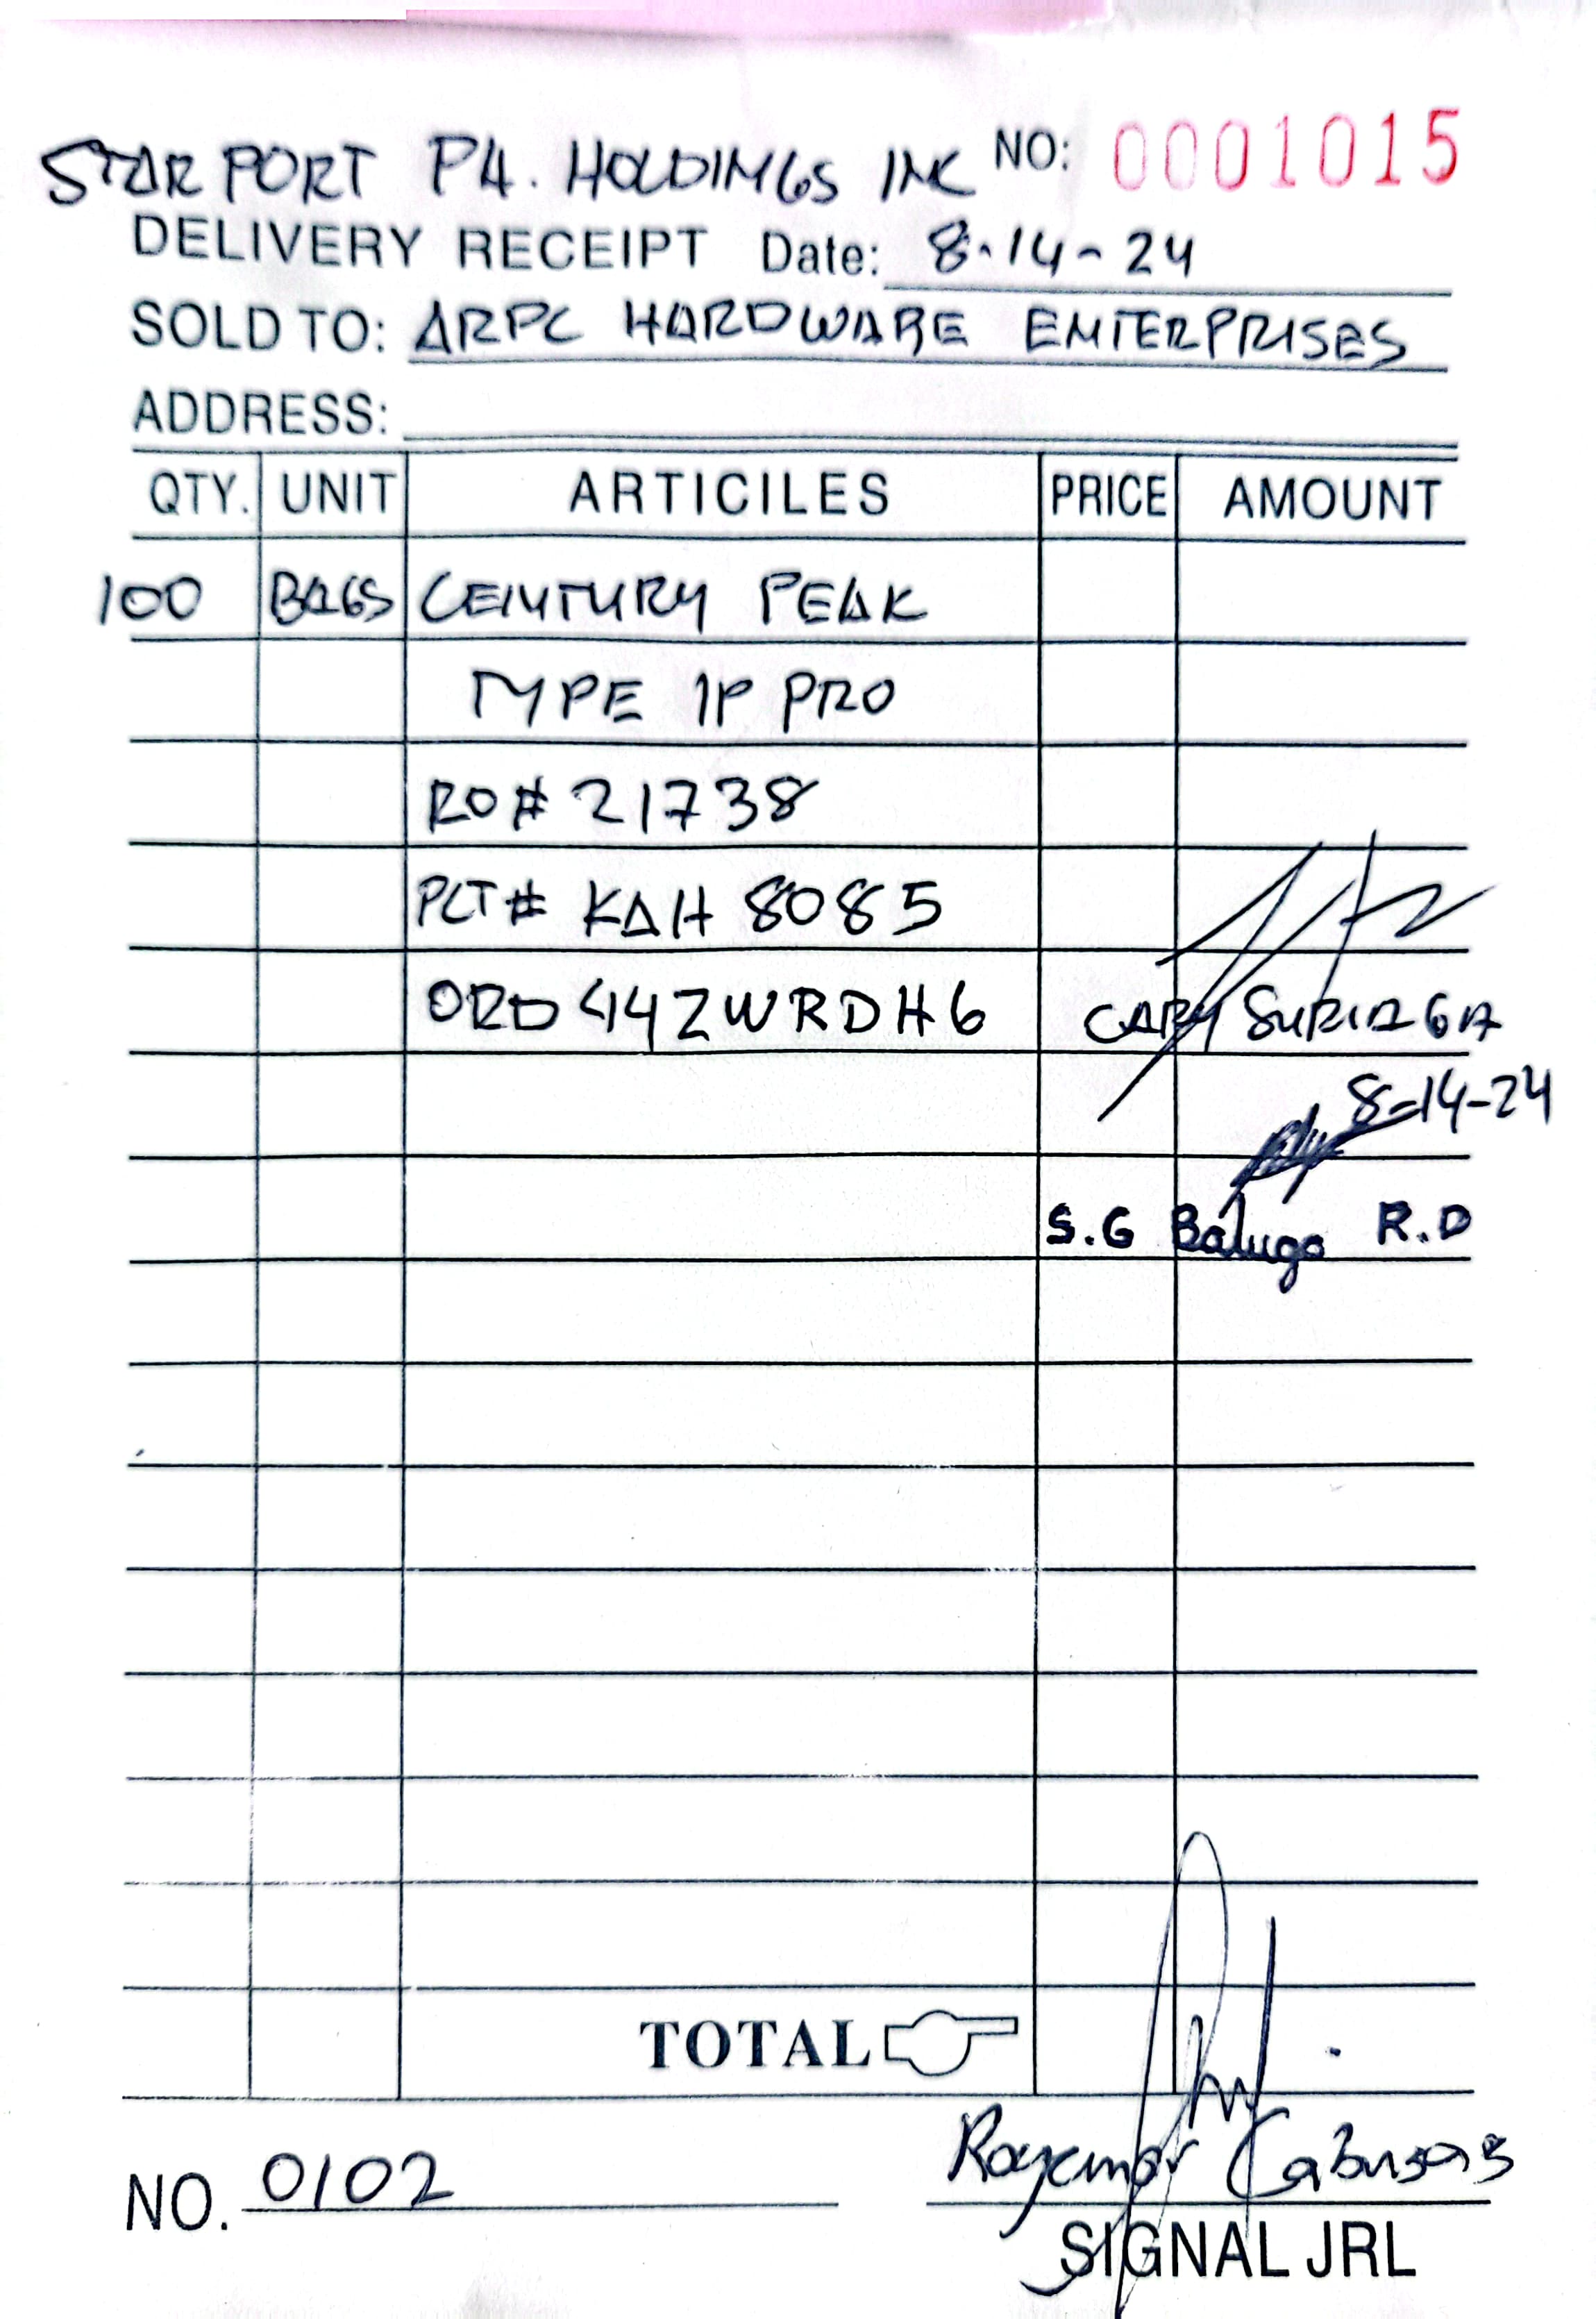 STAR PORT P4. HOLDINGS INC NO: 0001015
DELIVERY RECEIPT Date: 8-14-24
SOLD TO: ARPC HARDWARE ENTERPRISES
ADDRESS:
QTY. UNIT ARTICILES PRICE AMOUNT
100 BAGS CENTURY PEAK
TYPE 1P PRO
RO# 21738
PLT# KAH 8085
ORD 44ZWRDH6 CARY SURIAGA
8-14-24
S.G Balugo R.D
TOTAL
NO. 0102
SIGNAL JRL